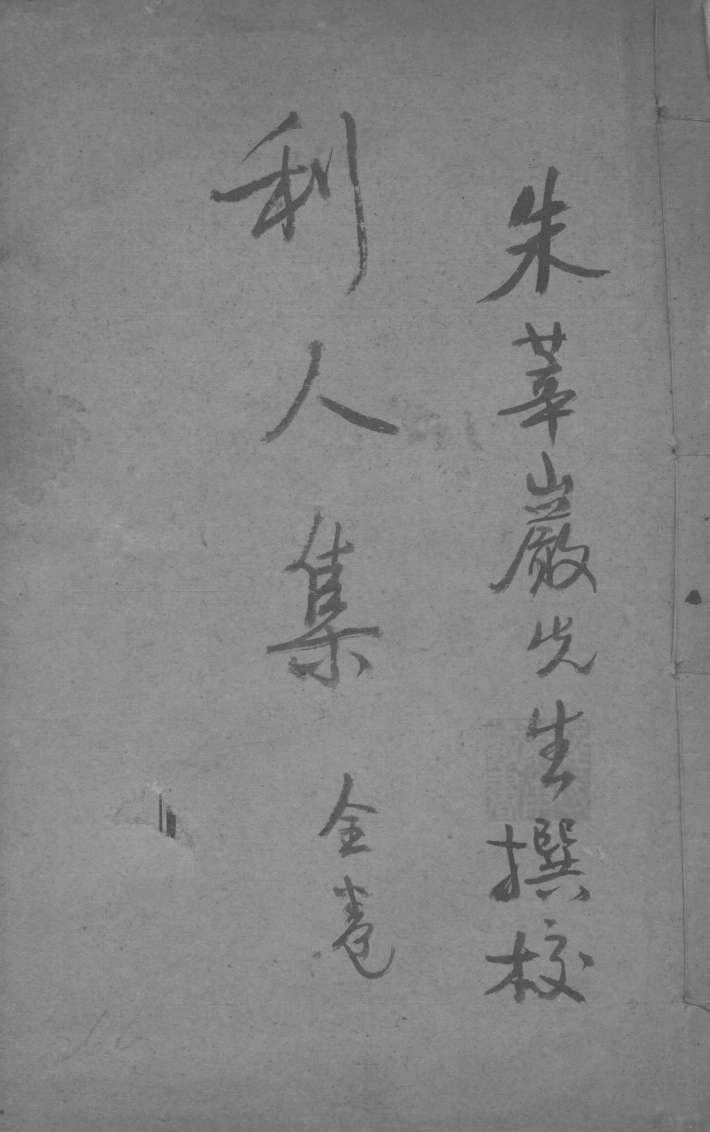 朱華巖先生撰校
利人集 全卷